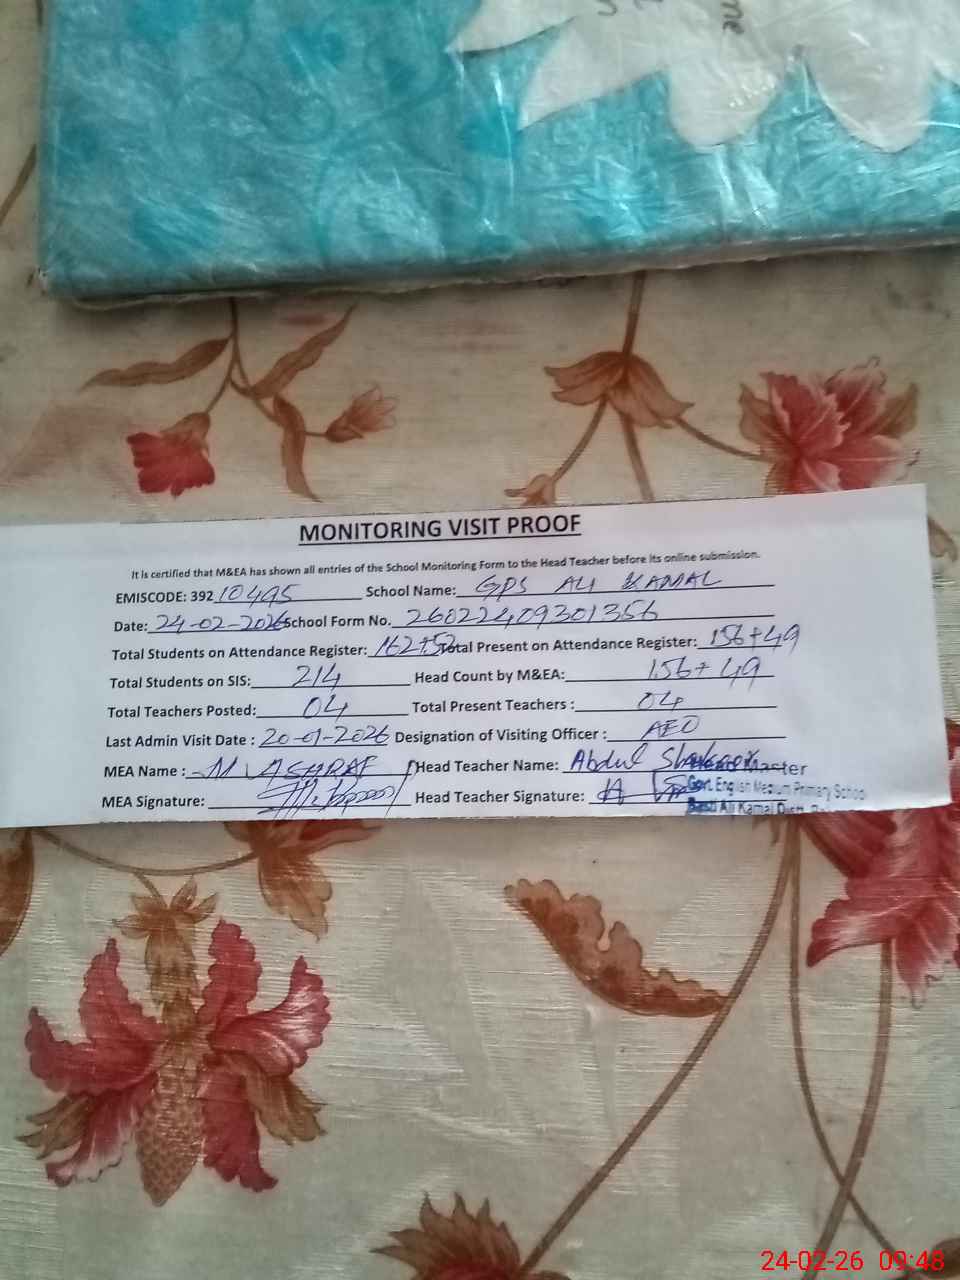 me
MONITORING VISIT PROOF
It is certified that M&EA has shown all entries of the School Monitoring Form to the Head Teacher before its online submission.
EMISCODE: 39210495 School Name: GPS ALI KAMAL
Date: 24-02-2026 School Form No. 26022409301356
Total Students on Attendance Register: 162+52 Total Present on Attendance Register: 156+49
Total Students on SIS: 214 Head Count by M&EA: 156+49
Total Teachers Posted: 04 Total Present Teachers : 04
Last Admin Visit Date : 20-01-2026 Designation of Visiting Officer : AEO
MEA Name : M. ASHRAF Head Teacher Name: Abdul Shakoor
Head Master
MEA Signature: Head Teacher Signature:
Govt. English Medium Primary School
Basti Ali Kamal Distt.
24-02-26 09:48